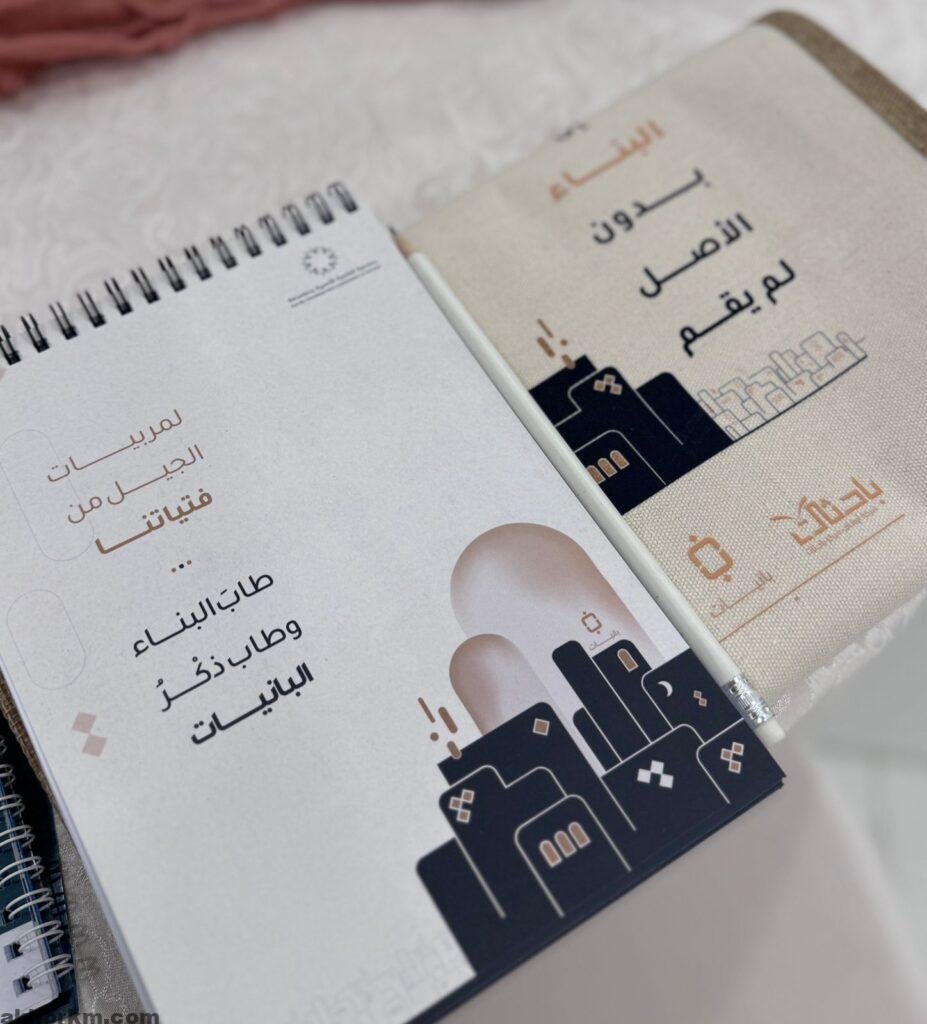 لمربيات
الجيل من
فتياتنا
...
طابَ البناء
وطاب ذكْرُ
البانيات
بانيات
البناء
بدون
الأصل
لم يقم
باحثات
بانيات